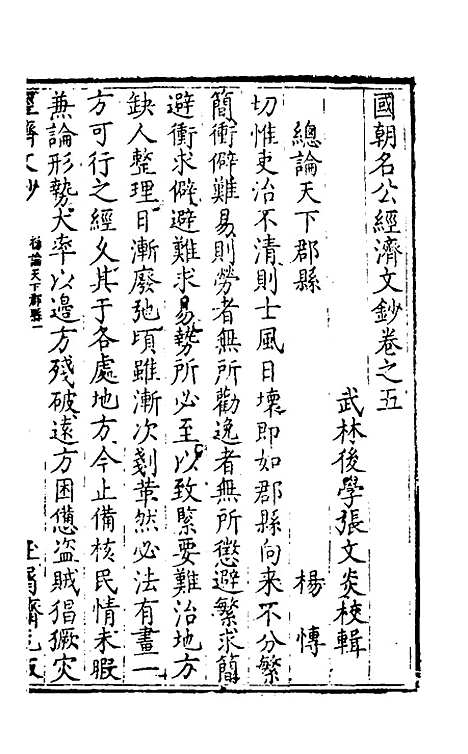 國朝名公經濟文鈔卷之五
武林後學張文炎校輯
總論天下郡縣 楊愽
切惟吏治不清則士風日壞即如郡縣向來不分繁
簡衝僻難易則勞者無所勸逸者無所懲避繁求簡
避衝求僻避難求易勢所必至以致緊要難治地方
缺人整理日漸廢弛頃雖漸次剗革然必法有畫一
方可行之經久其于各處地方今止備核民情未暇
兼論形勢大率以邊方殘破遠方困憊盗賊猖獗灾
經濟文鈔 總論天下郡縣一